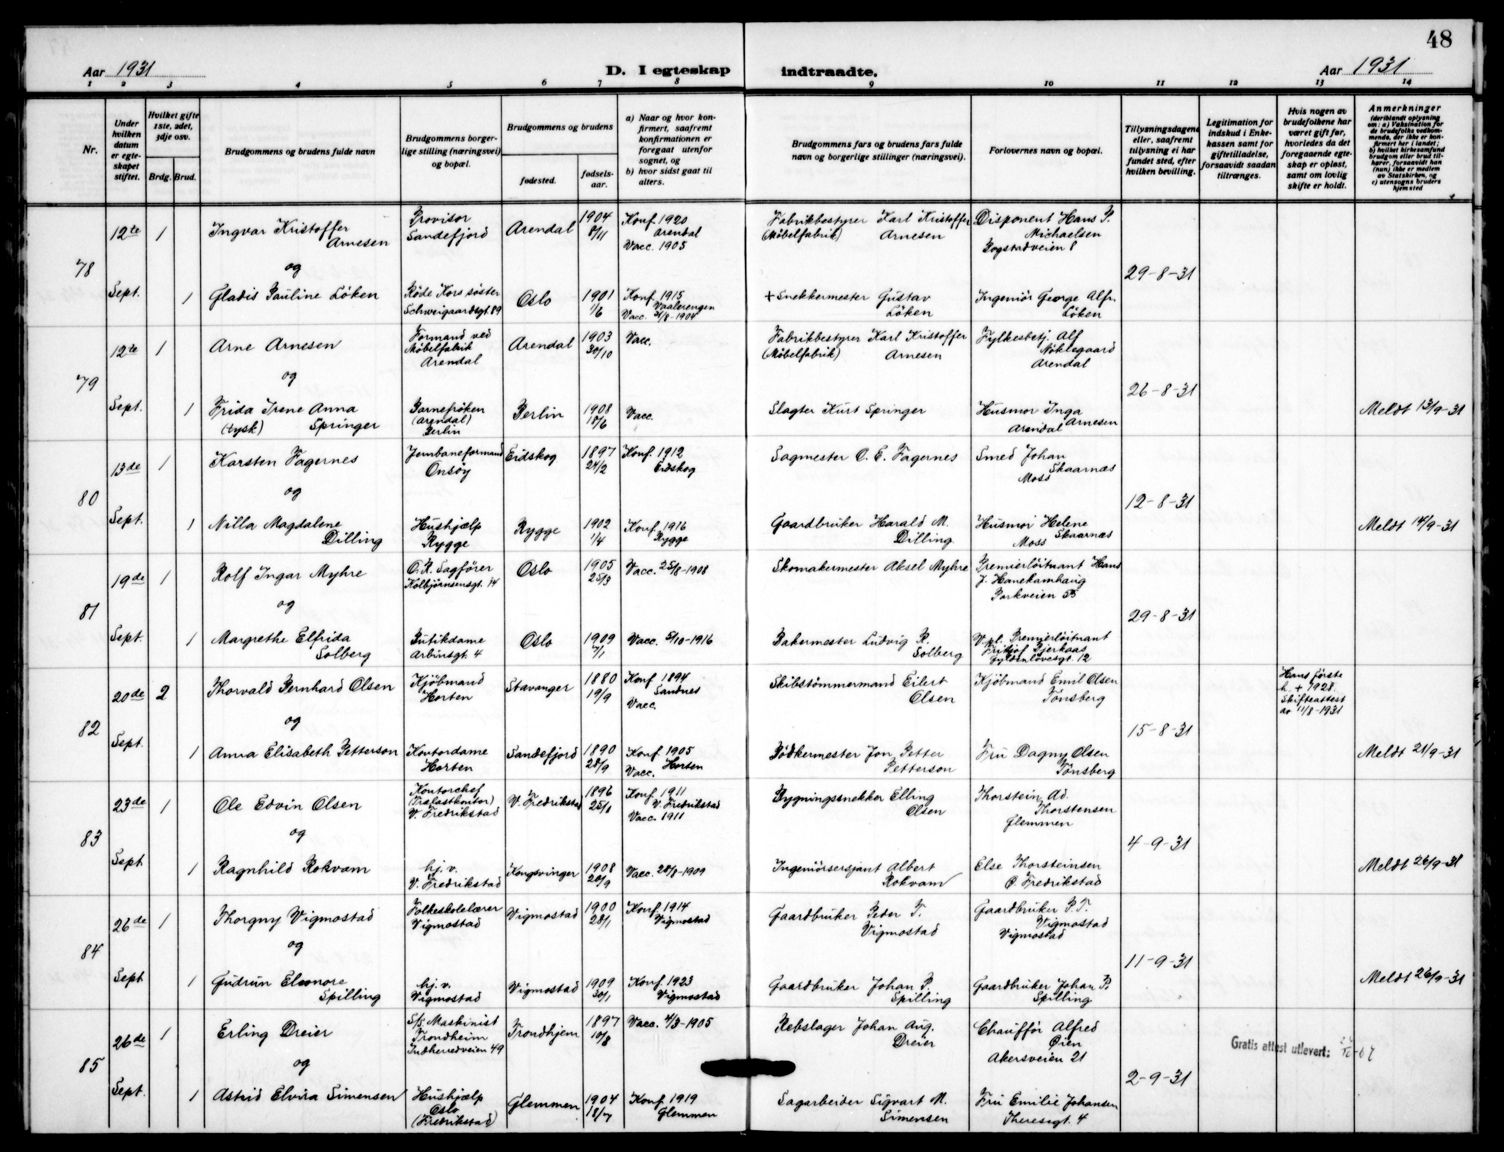 48
Aar 1931
D. I egteskap indtraadte.
Aar 1931
1 2 3 4 5 6 7 8 9 10 11 12 13 14
Nr.
Under hvilken datum er egteskapet stiftet.
Hvilket gifte 1ste, 2det, 3dje osv.
Brdg. Brud.
Brudgommens og brudens fulde navn
Brudgommens borgerlige stilling (næringsvei) og bopæl.
Brudgommens og brudens
fødested.
fødselsaar.
a) Naar og hvor konfirmert, saafremt konfirmationen er foregaat utenfor sognet, og
b) hvor sidst gaat til alters.
Brudgommens fars og brudens fars fulde navn og borgerlige stillinger (næringsvei).
Forlovernes navn og bopæl.
Tillysningsdagene eller, saafremt tillysning ei har fundet sted, efter hvilken bevilling.
Legitimation for indskud i Enkekassen samt for giftetilladelse, forsaavidt saadan tiltrænges.
Hvis nogen av brudefolkene har været gift før, hvorledes da det foregaaende egteskap er opløst, samt om lovlig skifte er holdt.
Anmerkninger
(deriblandt oplysning om: a) Vaksination for de brudefolks vedkommende, der ikke er konfirmert her i landet; b) hvilket kirkesamfund brudgom eller brud tilhører, forsaavidt han (hun) ikke er medlem av Statskirken, og c) utensogns bruders hjemsted
78
12te 1 Ingvar Kristoffer Arnesen Provisor Sandefjord Arendal 1904 8/11 Konf. 1920 Arendal Vacc. 1905 Fabrikbestyrer Karl Kristoffer (Møbelfabrik) Arnesen Disponent Hans P. Michaelsen Bogstadveien 8
og
29-8-31
Sept. 1 Gladis Pauline Løken Røde Kors søster Schweigaardsgt. 89 Oslo 1901 1/6 Konf. 1915 Vaalerengen Vacc. 31/8-1904 + Snekkermester Gustav Løken Ingeniør George Alfr. Løken
79
12te 1 Arne Arnesen Formand ved Møbelfabrik Arendal Arendal 1903 30/10 Vacc. Fabrikbestyrer Karl Kristoffer (Møbelfabrik) Arnesen Fylkesbetj. Alf Nøklegaard Arendal
og
26-8-31
Sept. 1 Frida Irene Anna (tysk) Springer Barnefrøken (Arendal) Berlin Berlin 1908 18/6 Vacc. Slagter Kurt Springer Husmor Inga Arnesen Arendal Meldt 13/9-31
80
13de 1 Karsten Fagernes Jernbaneformand Onsøy Eidskog 1897 24/2 Konf. 1912 Eidskog Sagmester O. E. Fagernes Smed Johan Skaarnæs Moss
og
12-8-31
Sept. 1 Nilla Magdalene Dilling Hushjælp Rygge Rygge 1902 1/4 Konf. 1916 Rygge Gaardbruker Harald M. Dilling Husmor Helene Skaarnæs Moss Meldt 14/9-31
81
19de 1 Rolf Ingar Myhre O. R. Sagfører Kolbjørnsensgt. 14 Oslo 1905 25/3 Vacc. 25/8-1908 Skomakermester Aksel Myhre Premierløitnant Hans J. Hanekamhaug Parkveien 5B
og
29-8-31
Sept. 1 Margrethe Elfrida Solberg Butikdame Arbinsgt. 4 Oslo 1909 7/1 Vacc. 5/10-1916 Bakermester Ludvig R. Solberg V.pl. Premierløitnant Fritjof Bjerkaas Gyldenløvesgt. 12
82
20de 2 Thorvald Bernhard Olsen Kjøbmand Horten Stavanger 1880 19/9 Konf. 1894 Sandnes Vacc. Skibstømmermand Eilert Olsen Kjøbmand Emil Olsen Tønsberg Hans første h. + 1928. Skifteattest av 11/8-1931
og
15-8-31
Sept. 1 Anna Elisabeth Petterson Kontordame Horten Sandefjord 1890 28/9 Konf. 1905 Horten Vacc. Bødkermester Jon Petter Petterson Fru Dagny Olsen Tønsberg Meldt 21/9-31
83
23de 1 Ole Edvin Olsen Kontorchef (Trælastkontor) V. Fredrikstad V. Fredrikstad 1896 25/1 Konf. 1911 V. Fredrikstad Vacc. 1911 Bygningssnekker Elling Olsen Thorstein Ad. Thorstensen Glemmen
og
4-9-31
Sept 1 Ragnhild Rokvam hj. v. V. Fredrikstad Kongsvinger 1908 20/9 Vacc. 28/8-1909 Ingeniørsersjant Albert Rokvam Else Thorsteinsen Ø. Fredrikstad Meldt 26/9-31
84
26de 1 Thorgny Vigmostad Folkeskolelærer Vigmostad Vigmostad 1900 28/1 Konf. 1914 Vigmostad Gaardbruker Peder T. Vigmostad Gaardbruker P. T. Vigmostad Vigmostad
og
11-9-31
Sept 1 Gudrun Eleonore Spilling hj. v. Vigmostad Vigmostad 1909 30/1 Konf. 1923 Vigmostad Gaardbruker Johan P. Spilling Gaardbruker Johan P. Spilling Meldt 26/9-31
85
26de 1 Erling Dreier S/S Maskinist Trondheim Indherredveien 49 Trondhjem 1897 10/8 Vacc. 4/3-1905 Rebslager Johan Aug. Dreier Chauffør Alfred Øien Akersveien 21 Gratis attest utlevert:
og
2-9-31
Sept. 1 Astrid Elvira Simensen Hushjælp Oslo (Fredrikstad) Glemmen 1904 18/7 Konf. 1919 Glemmen Sagarbeider Sigvart M. Simensen Fru Emilie Johansen Theresigt. 4